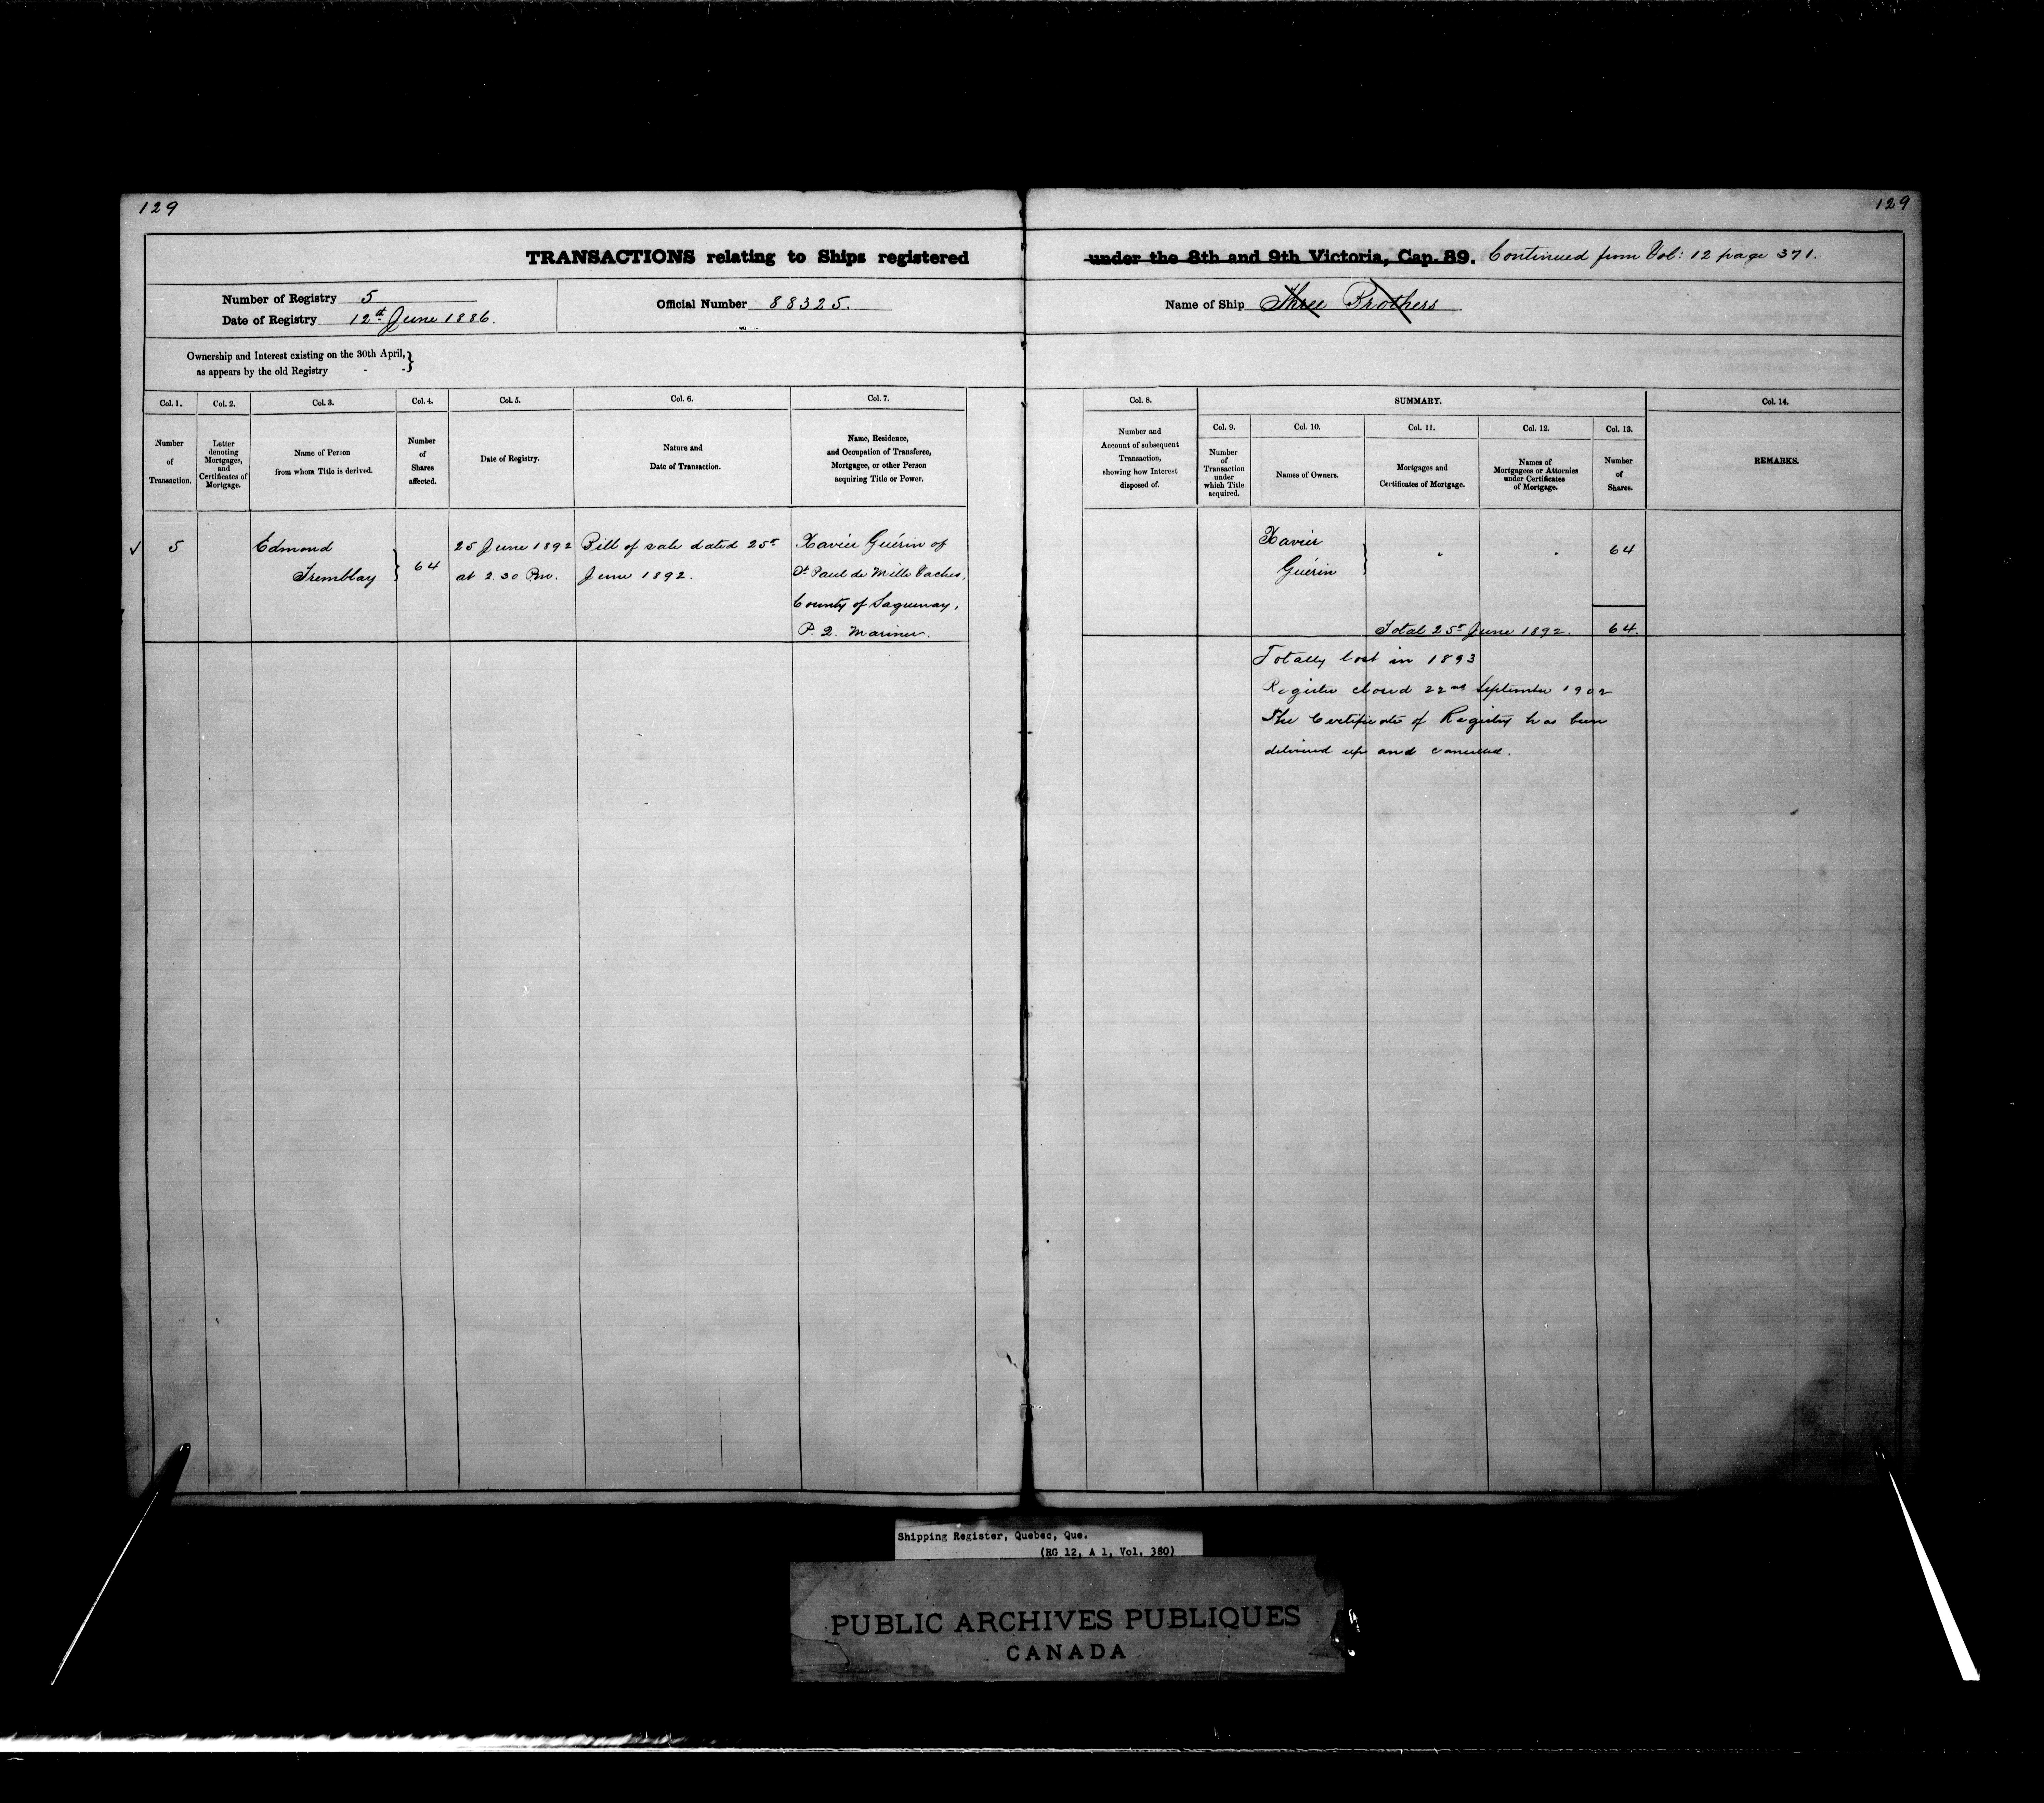 129
129
TRANSACTIONS relating to Ships registered under the 8th and 9th Victoria, Cap. 89. Continued from Vol: 12 page 371.
Number of Registry 5
Date of Registry 12th June 1886.
Official Number 88325.
Name of Ship Three Brothers
Ownership and Interest existing on the 30th April, }
as appears by the old Registry - -
Col. 1.
Number
of
Transaction.
Col. 2.
Letter
denoting
Mortgages,
and
Certificates of
Mortgage.
Col. 3.
Name of Person
from whom Title is derived.
Col. 4.
Number
of
Shares
affected.
Col. 5.
Date of Registry.
Col. 6.
Nature and
Date of Transaction.
Col. 7.
Name, Residence,
and Occupation of Transferee,
Mortgagee, or other Person
acquiring Title or Power.
Col. 8.
Number and
Account of subsequent
Transaction,
showing how Interest
disposed of.
SUMMARY.
Col. 9.
Number
of
Transaction
under
which Title
acquired.
Col. 10.
Names of Owners.
Col. 11.
Mortgages and
Certificates of Mortgage.
Col. 12.
Names of
Mortgagees or Attornies
under Certificates
of Mortgage.
Col. 13.
Number
of
Shares.
Col. 14.
REMARKS.
√ 5
Edmond
Tremblay }
64
25 June 1892
at 2.30 Pm.
Bill of sale dated 25th
June 1892.
Xavier Guérin of
St Paul de Mille Vaches,
County of Saguenay,
P. Q. Mariner.
Xavier
Guérin }
64
Total 25th June 1892. 64.
Totally lost in 1893
Register closed 22nd September 1902
The Certificate of Registry has been
delivered up and cancelled.
Shipping Register, Quebec, Que.
(RG 12, A 1, Vol. 380)
PUBLIC ARCHIVES PUBLIQUES
CANADA